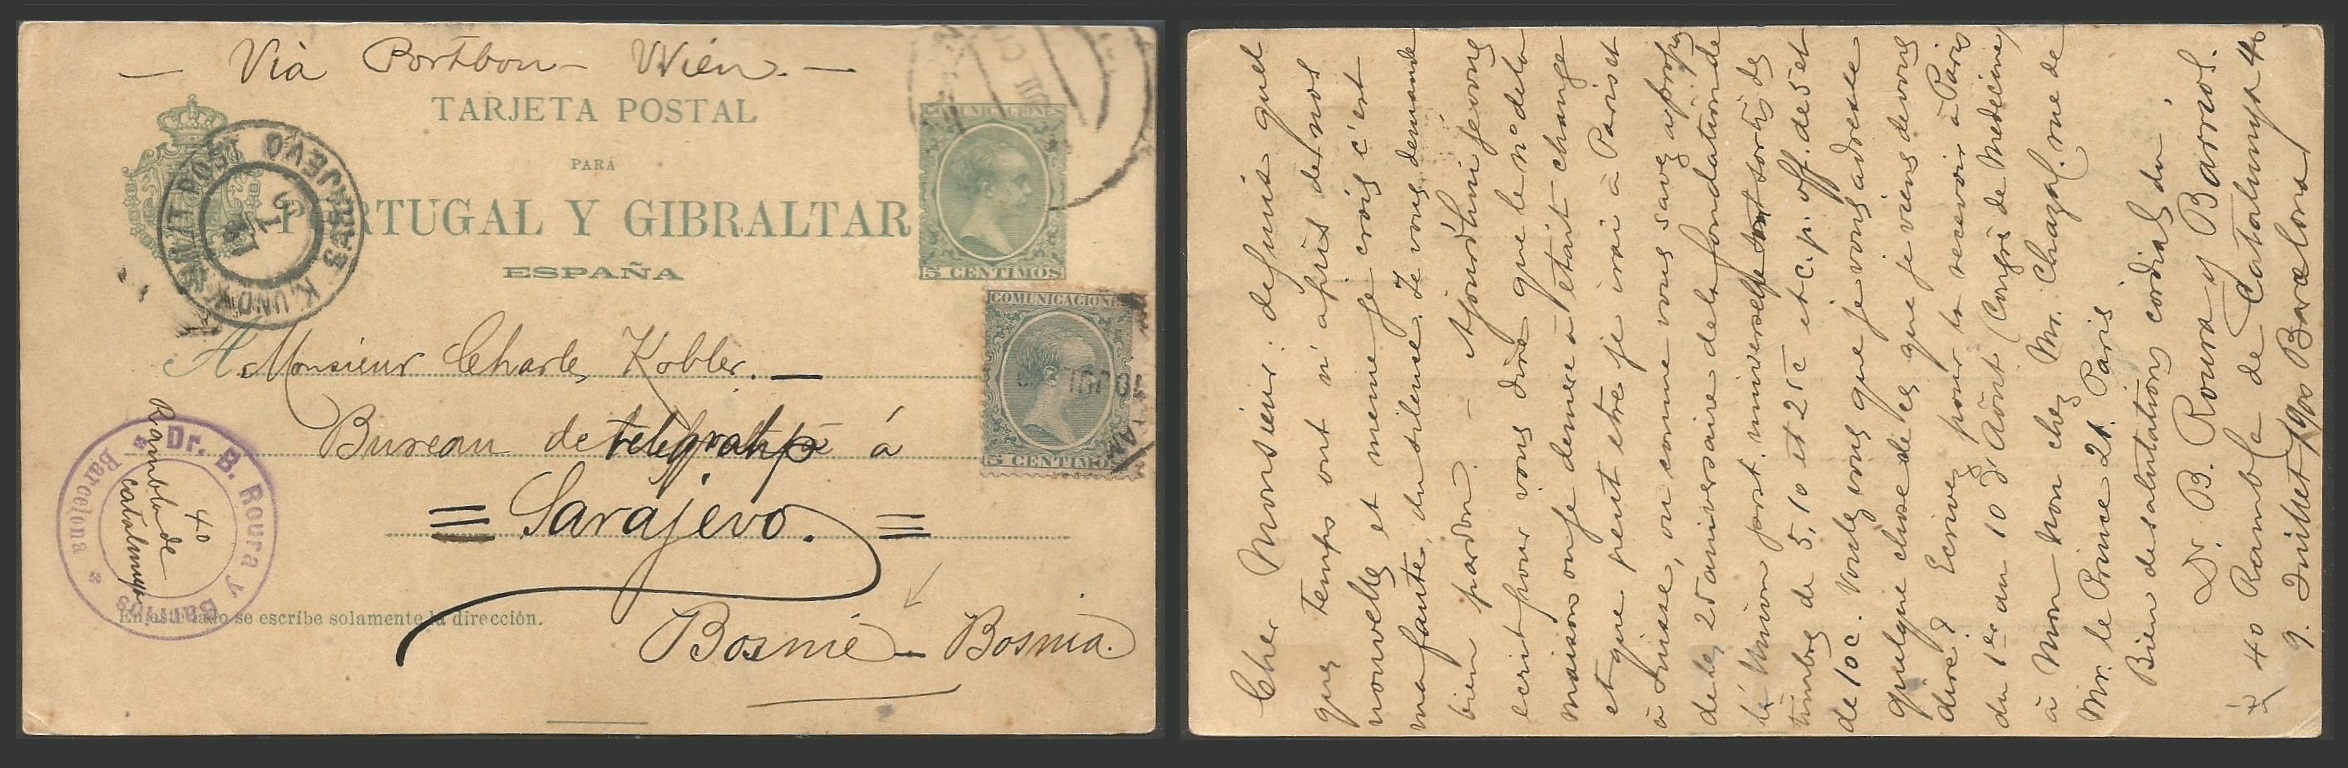 — Via Portbou — Wien. —
TARJETA POSTAL
PARA
PORTUGAL Y GIBRALTAR
ESPAÑA
COMUNICACIONES
5 CENTIMOS
K. UND K. MILIT. POST
SARAJEVO
COMUNICACIONES
5 CENTIMOS
A Monsieur Charles Kobler. —
Bureau de telegraphe á
= Sarajevo. =
Bosnie — Bosnia.
Dr. B. Roura y Barrios
* Barcelona *
40
Rambla de
Catalunya
En este lado se escribe solamente la dirección.
Cher Monsieur: depuis quel
ques temps ont n'apris de vos
nouvelles et meme je crois c'est
ma faute, du silence. Je vous demande
bien pardon. — Ajourdhui je vous
ecrit pour vous dire que le nº de la
maison ou je demeure a etant change
et que peut etre je irai à Paris et
à Suisse, ou comme vous savez a propos
de les 25 aniversaire de la fondation de
lá Union post. universelle sont sortis des
timbres de 5, 10 et 25 c et c. p. off. de 5 et
de 10 c. Voulez vous que je vous adresse
quelque chose de les que je viens de vous
dire? Ecrivez pour la recevoir à Paris
du 1er au 10 d'Aôut (Congrès de Medecine)
à mon nom chez Mr. Chazal. rue de
Mr. le Prince 21. Paris
Bien de salutations cordials du
Dr. B. Roura y Barrios.
40 Rambla de Catalunya 40
9. Juillet 1900 Barcelona